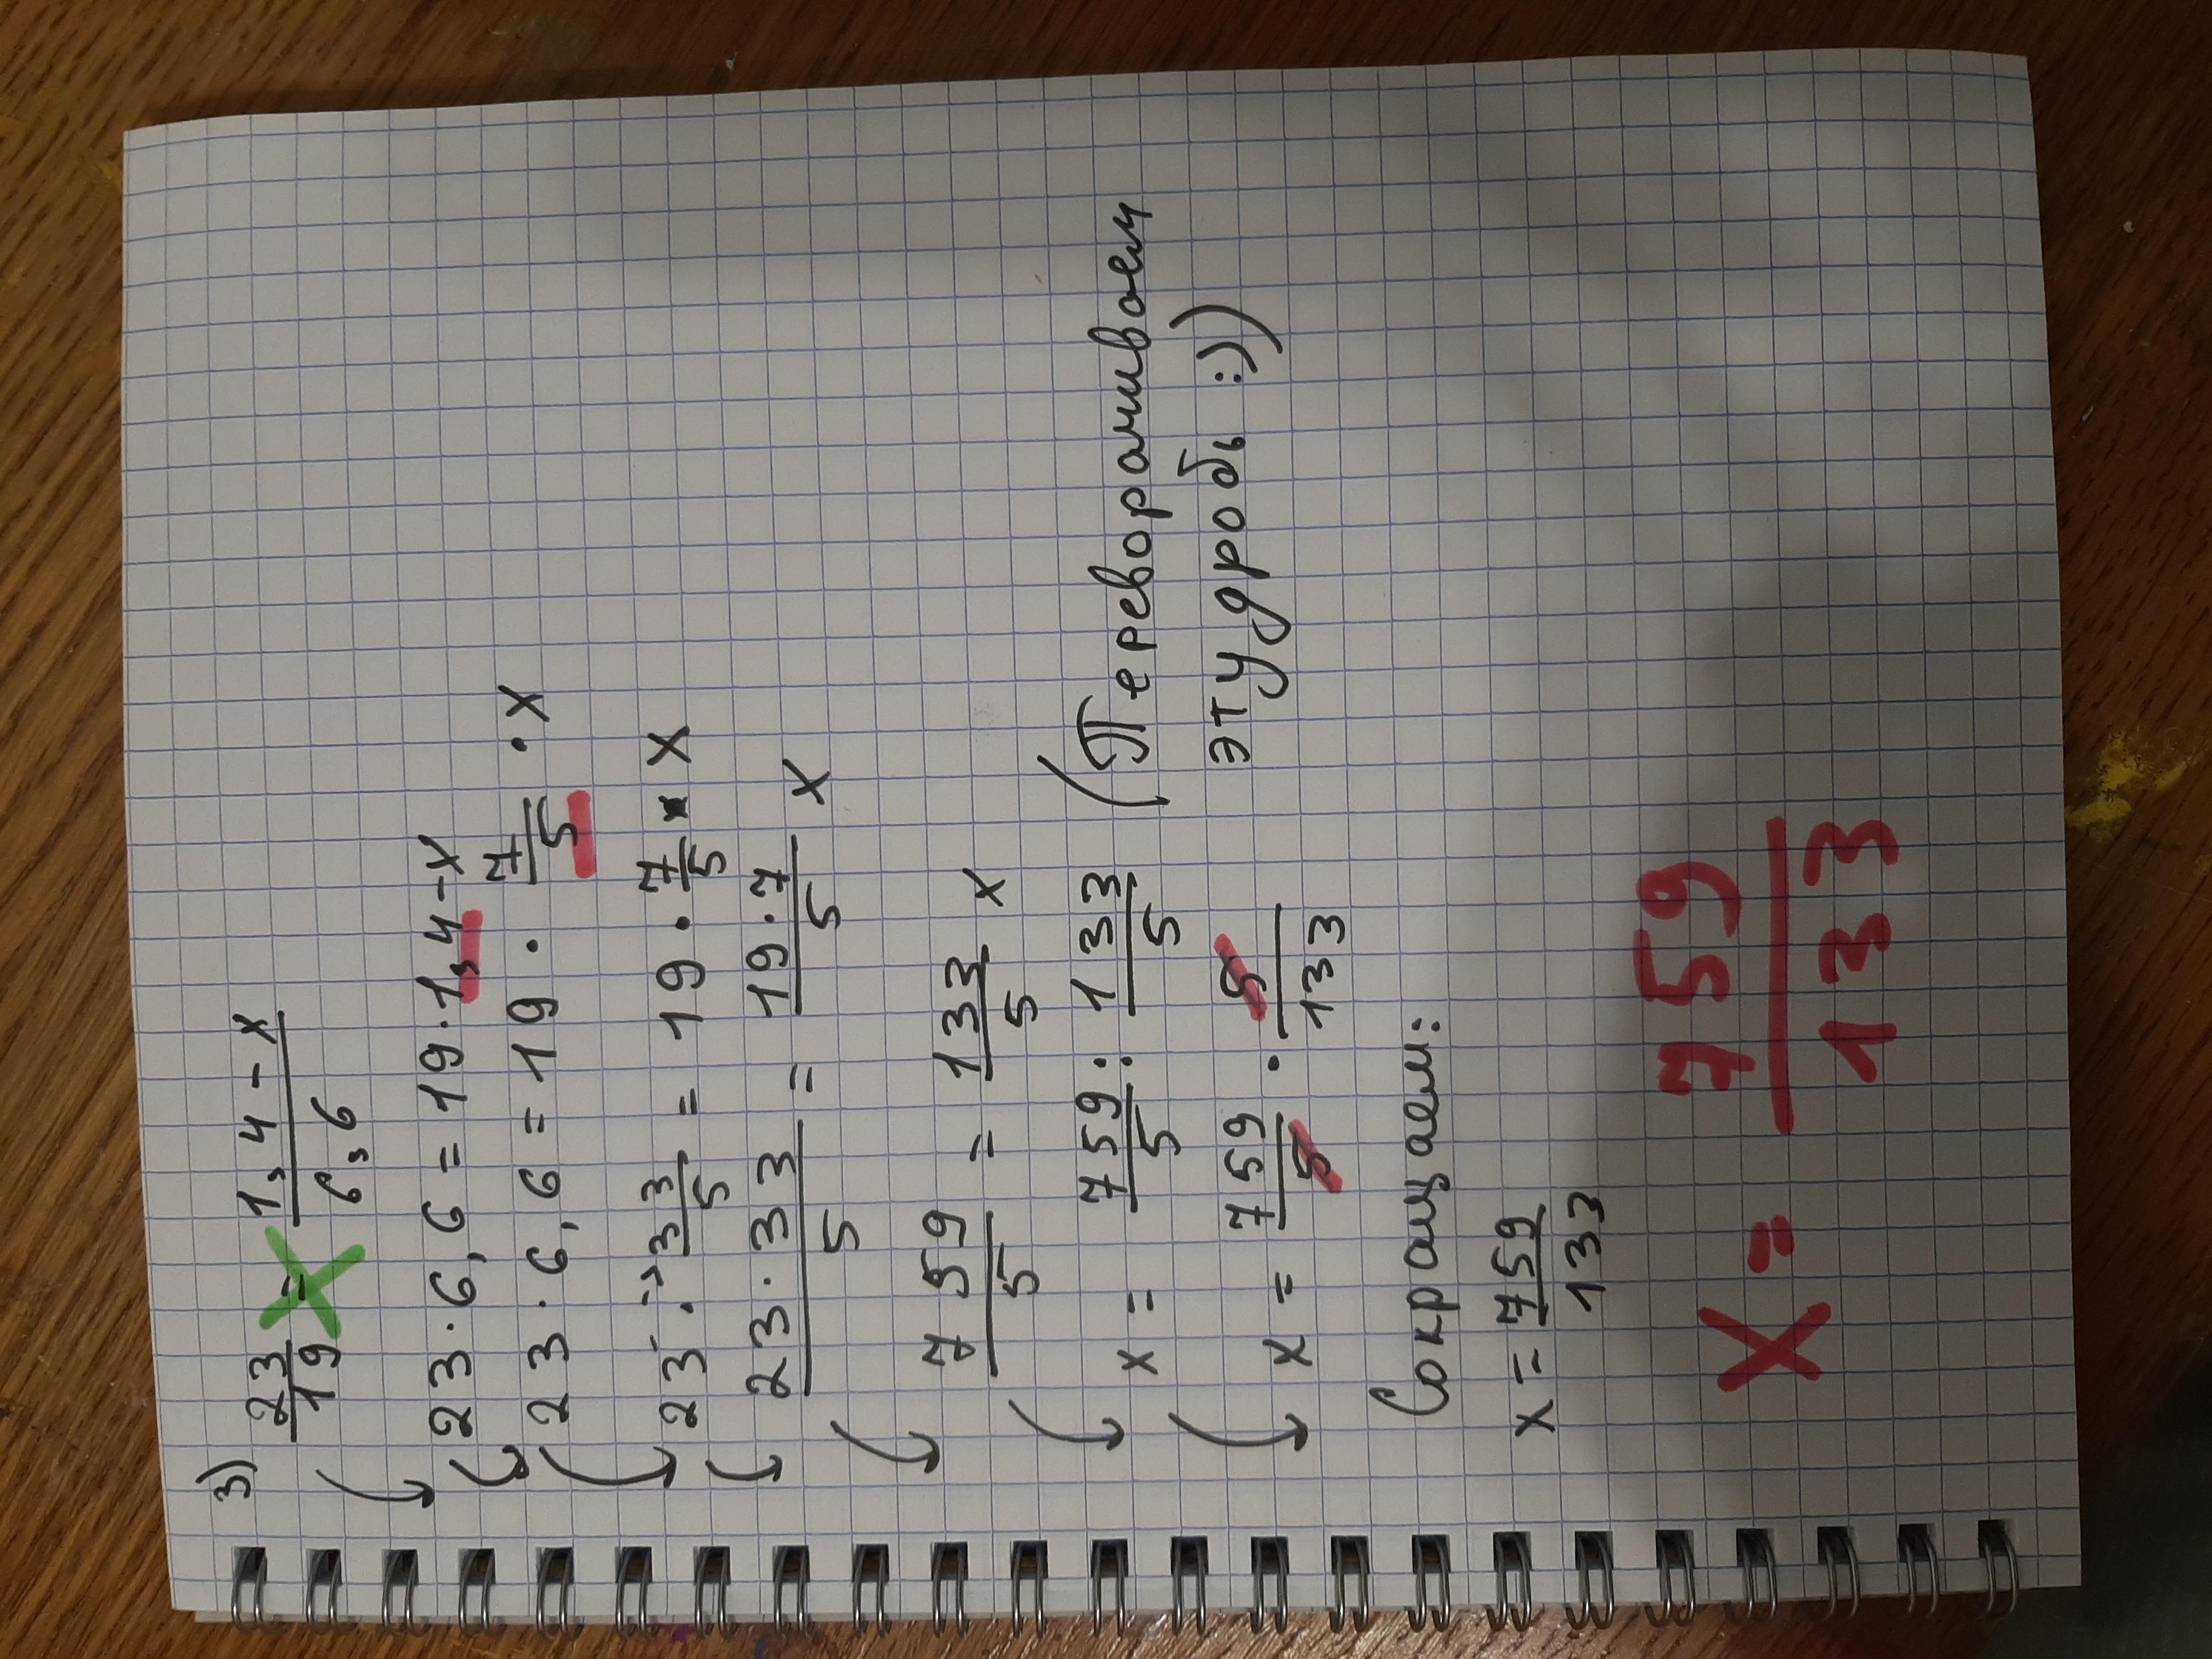 3)
23/19 = 1,4 - x / 6,6
23 · 6,6 = 19 · 1,4 - x
23 · 6,6 = 19 · 7/5 · x
23 · 33/5 = 19 · 7/5 x x
23 · 33 / 5 = 19 · 7 / 5 x
759/5 = 133/5 x
x = 759/5 : 133/5 (Переворачиваем
эту дробь :))
x = 759/5 · 5/133
Сокращаем:
x = 759/133
x = 759/133